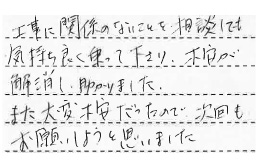 工事に関係のないことを相談しても
気持ち良く乗って下さり、不安が
解消し、助かりました。
また大変不安だったので、次回も
お願いしようと思いました